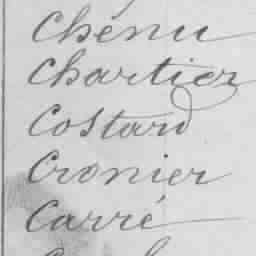 Chénu
Chartier
Costard
Cronier
Carré